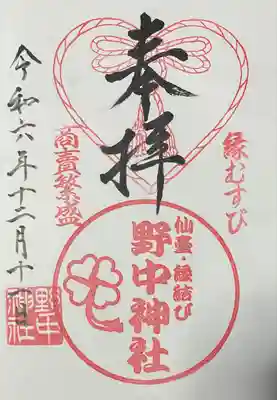 奉拝
縁むすび
商売繁盛
仙臺・縁結び
野中神社
令和六年十二月十一日
野中神社